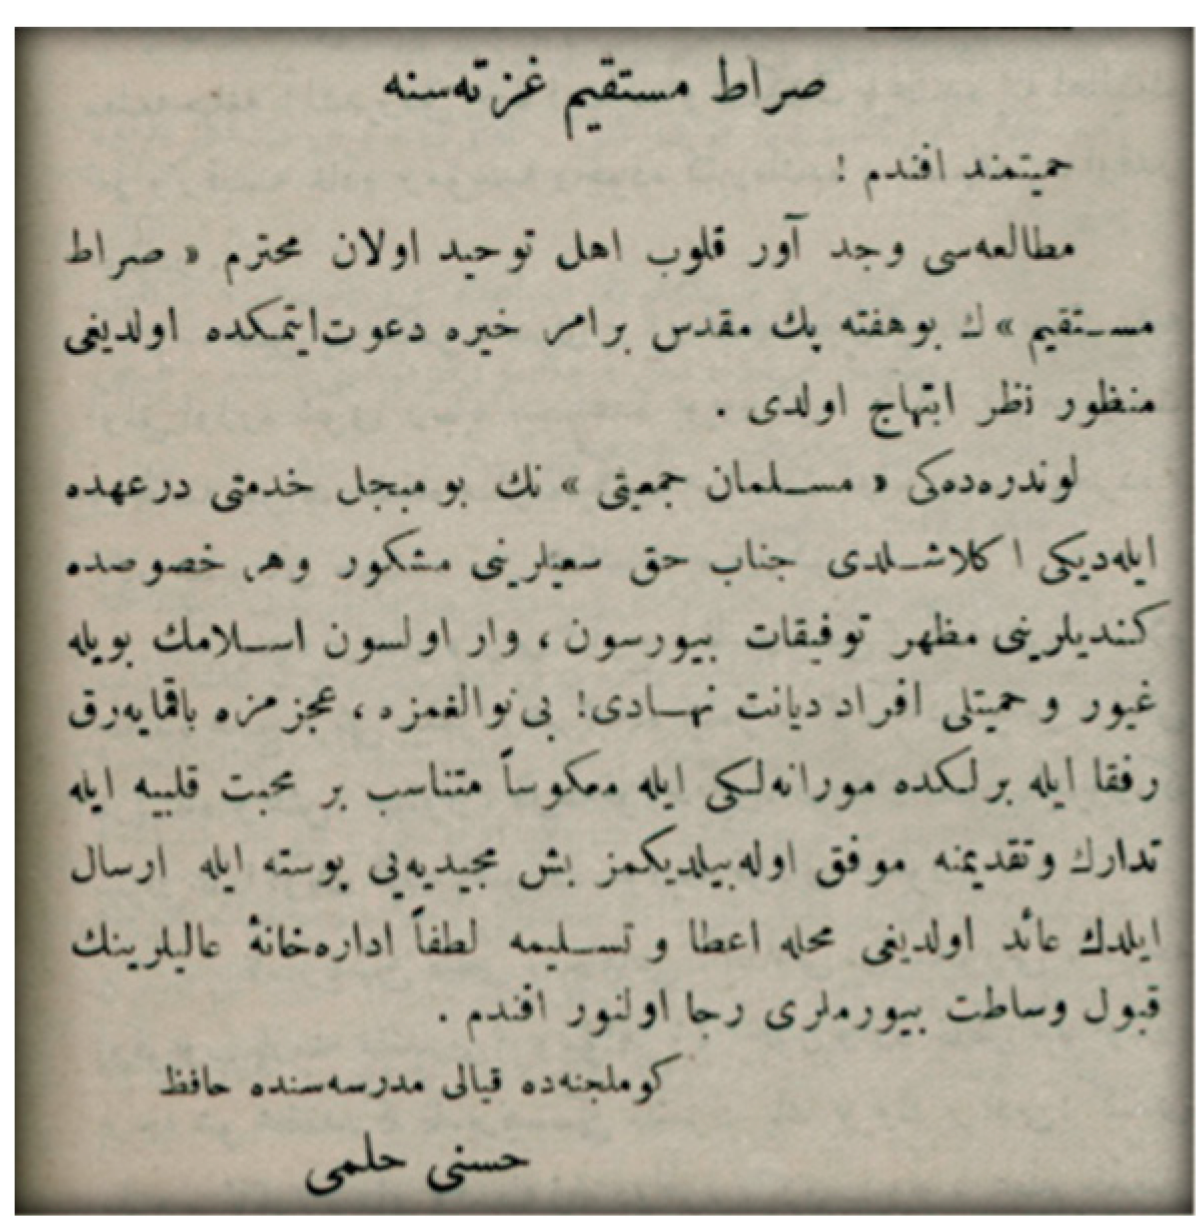 صراط مستقیم غزته‌سنه
حمیتمند افندم !
مطالعه‌سی وجد آور قلوب اهل توحید اولان محترم « صراط
مستقیم » ك بوهفته پك مقدس برامر خیره دعوت‌ایتمكده اولدیغی
منظور نظر ابتهاج اولدی .
لوندره‌ده‌كی « مسلمان جمعیتی » نك بو مبجل خدمتی درعهده
ایله‌دیكی اكلاشلدی جناب حق سعیلرینی مشكور وهر خصوصده
كندیلرینی مظهر توفیقات بیورسون ، وار اولسون اسلامك بویله
غیور و حمیتلی افراد دیانت نهادی! بی‌نوالغمزه ، عجزمزه باقمایه‌رق
رفقا ایله برلكده مورانه‌لكی ایله معكوساً متناسب بر محبت قلبیه ایله
تدارك وتقدیمنه موفق اوله‌بیلدیكمز بش مجیدیه‌یی پوسته ایله ارسال
ایلدك عائد اولدیغی محله اعطا و تسلیمه لطفاً اداره‌خانهٔ عالیلرینك
قبول وساطت بیورملری رجا اولنور افندم .
كوملجنه‌ده قیالی مدرسه‌سنده حافظ
حسنی حلمی